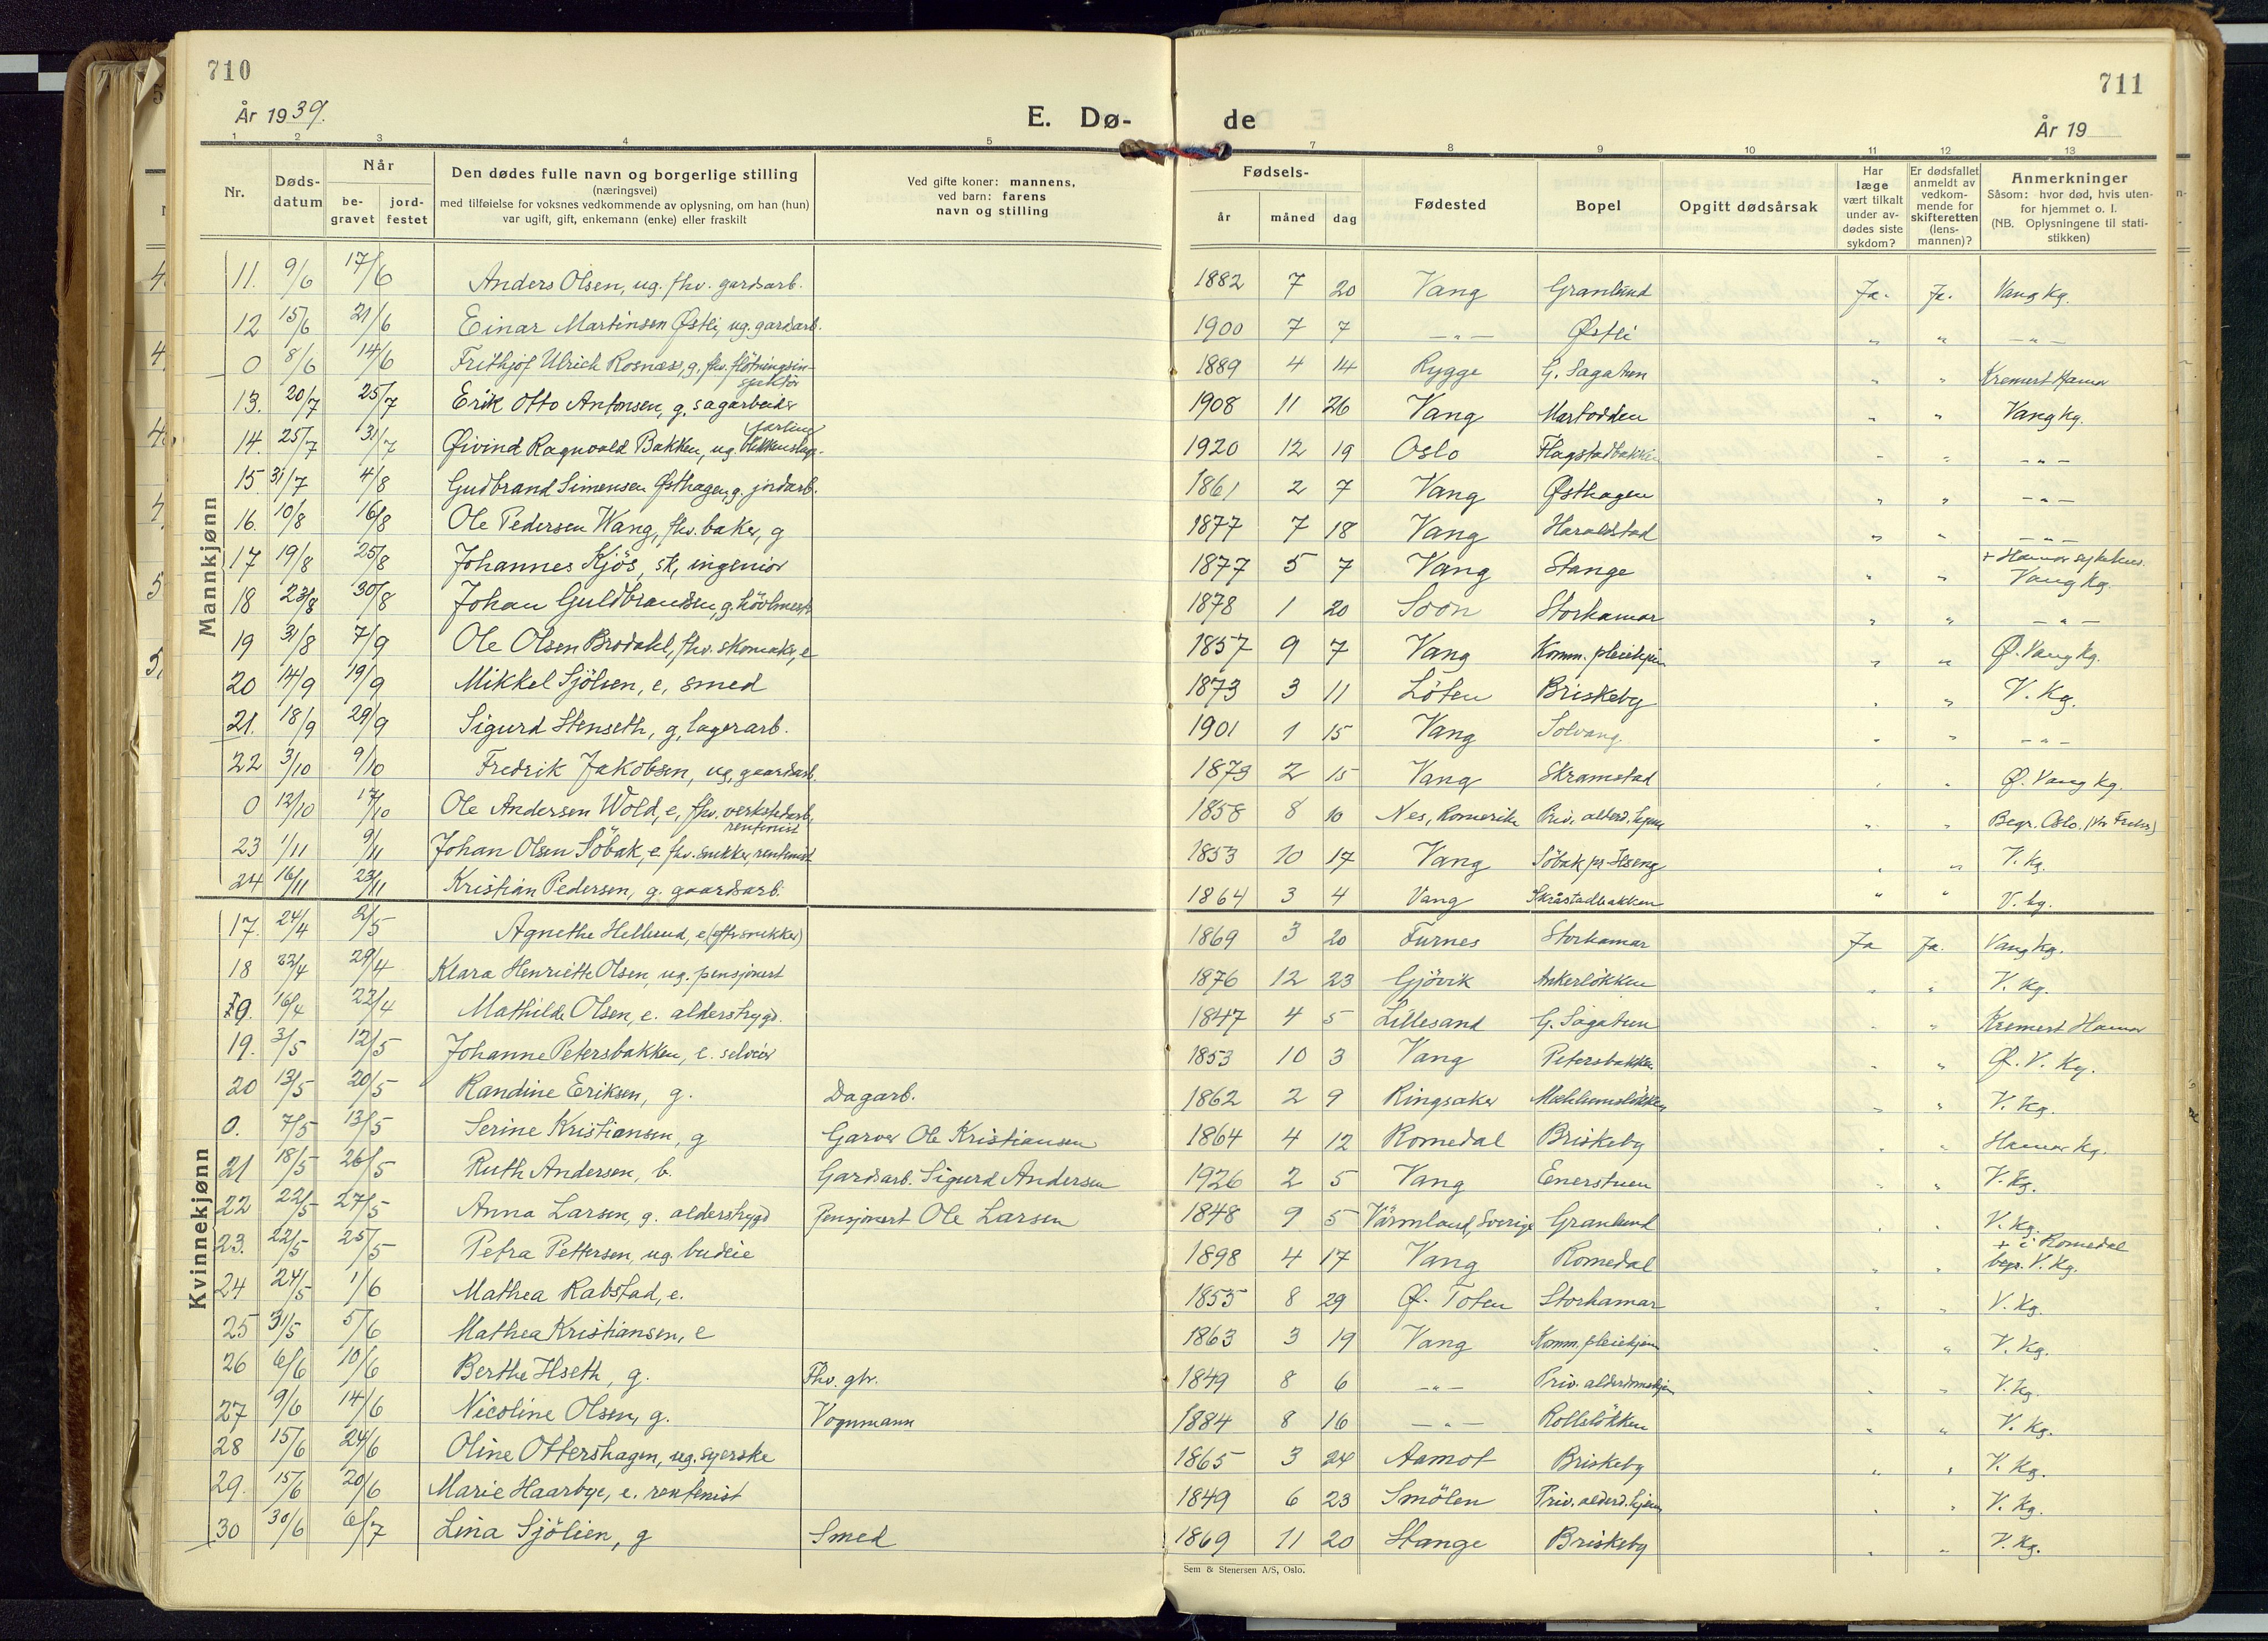 710
711
År 1939.
E. Dø-
de
År 19
1 2 3 4 5 7 8 9 10 11 12 13
Nr.
Døds-
datum
Når
be-
gravet
jord-
festet
Den dødes fulle navn og borgerlige stilling
(næringsvei)
med tilføielse for voksnes vedkommende av oplysning, om han (hun)
var ugift, gift, enkemann (enke) eller fraskilt
Ved gifte koner: mannens,
ved barn: farens
navn og stilling
Fødsels-
år måned dag
Fødested
Bopel
Opgitt dødsårsak
Har
læge
vært tilkalt
under av-
dødes siste
sykdom?
Er dødsfallet
anmeldt av
vedkom-
mende for
skifteretten
(lens-
mannen)?
Anmerkninger
Såsom: hvor død, hvis uten-
for hjemmet o. l.
(NB. Oplysningene til stati-
stikken)
Mannkjønn
11. 9/6 17/6 Anders Olsen, ug. fhv. gardsarb. 1882 7 20 Vang Granlund Ja. Ja. Vang kg.
12 15/6 21/6 Einar Martinsen Østli, ug. gardarb. 1900 7 7 -"- Østli " " -"-
0 8/6 14/6 Frithjof Ulrich Rosnæss, g. fhv. flötningsin-
spektör 1889 4 14 Rygge G. Sagatun " " Kremert Hamar
13. 20/7 25/7 Erik Otto Antonsen, g. sagarbeider 1908 11 26 Vang Martodden " " Vang kg.
14. 25/7 31/7 Øivind Ragnvald Bakken, ug. 1920 12 19 Oslo Flagstadbakken " " -"-
15. 31/7 4/8 Gudbrand Simensen Østhagen, g. jordarb. 1861 2 7 Vang Østhagen " " -"-
16. 10/8 16/8 Ole Pedersen Wang, fhv. baker, g 1877 7 18 Vang Haraldstad " " -"-
17 19/8 25/8 Johannes Kjös, sk, ingeniör 1877 5 7 Vang Stange " " + Hamar sykehus.
Vang kg.
18 23/8 30/8 Johan Guldbrandsen, g. hövlmest. 1878 1 20 Soon Storhamar " " -"-
19 31/8 7/9 Ole Olsen Brodahl, fhv. skomaker, e 1857 9 7 Vang Komm. pleiehjem " " Ø. Vang kg.
20 14/9 19/9 Mikkel Sjölien, e, smed 1873 3 11 Löten Briskeby " " V. Kg.
21. 18/9 29/9 Sigurd Stenseth, g, lagerarb. 1901 1 15 Vang Solvang. " " -"-
22 3/10 9/10 Fredrik Jakobsen, ug, gaardsarb. 1879 2 15 Vang Skramstad " " Ø. Vang kg.
0 12/10 17/10 Ole Andersen Wold, e, fhv. verkstedarb,
rentenist 1858 8 10 Nes, Romerike Priv. alderd. hjem " " Begr. Oslo.
23 1/11 9/11 Johan Olsen Söbak, e. fhv. snekker, rentenist 1853 10 17 Vang Söbak pr Ilseng " " V. Kg.
24 16/11 23/11 Kristian Pedersen, g. gaardsarb. 1864 3 4 Vang Skråstadbakken " " V. kg.
Kvinnekjønn
17. 24/4 2/5 Agnethe Hellerud, e (eft. snekker) 1869 3 20 Furnes Storhamar Ja Ja. Vang kg.
18 22/4 29/4 Klara Henriette Olsen, ug. pensjonert 1876 12 23 Gjövik Ankerlökken " " V. Kg.
16/4 22/4 Mathilde Olsen, e. alderstrygd. 1847 4 5 Lillesand G. Sagatun " " Kremert Hamar
19. 3/5 12/5 Johanne Petersbakken, e. selveier 1853 10 3 Vang Petersbakken " " Ø. V. Kg.
20 13/5 20/5 Randine Eriksen, g. Dagarb. 1862 2 9 Ringsaker Mæhlumslökken " " V. Kg.
0. 7/5 13/5 Serine Kristiansen, g Garver Ole Kristiansen 1864 4 12 Romedal Briskeby " " Hamar Kg.
21 18/5 26/5 Ruth Andersen, b. Gardsarb. Sigurd Andersen 1926 2 5 Vang Enerstuen " " V. Kg.
22 22/5 27/5 Anna Larsen, g. alderstrygd Pensjonert Ole Larsen 1848 9 5 Värmland, Sverige Granlund " " V. Kg.
23. 22/5 25/5 Petra Pettersen, ug. budeie 1898 4 17 Vang Romedal " " + i Romedal
begr. V. Kg.
24 24/5 1/6 Mathea Rabstad, e. 1855 8 29 Ø. Toten Storhamar " " V. Kg.
25 31/5 5/6 Mathea Kristiansen, e 1863 3 19 Vang Komm. pleiehjem " " V. Kg.
26 6/6 10/6 Berthe Ilseth, g. Fhv. gbr. 1849 8 6 -"- Priv. alderdomshjem " " V. Kg.
27 9/6 14/6 Nicoline Olsen, g. Vognmann 1884 8 16 -"- Rollslökken " " V. Kg.
28 15/6 24/6 Oline Ottershagen, ug. syerske 1865 3 24 Aamot Briskeby " " V. Kg.
29. 15/6 20/6 Marie Haarbye, e. rentenist 1849 6 23 Smölen Priv. alderd. hjem " " V. Kg.
30 30/6 6/7 Lina Sjölien, g Smed 1869 11 20 Stange Briskeby " " V. Kg.
Sem & Stenersen A/S, Oslo.